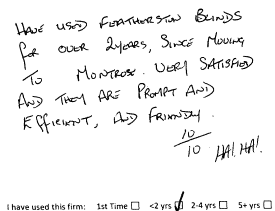 HAVE USED FEATHERSTON BLINDS
for OVER 2 YEARS, SINCE MOVING
TO MONTROSE. VERY SATISFIED
AND THEY ARE PROMPT AND
EFFICIENT, AND FRIENDLY.
10/10 HA! HA!
I have used this firm: 1st Time <2 yrs 2-4 yrs 5+ yrs